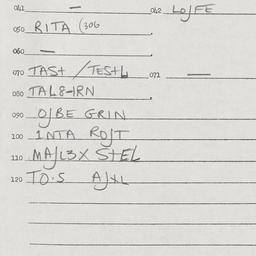 041 — 042 LOJFE
050 RITA (306
060 —
070 TAST / TESTL 071 —
080 TAL8-IRN
090 OJBE GRIN
100 1NTA ROJT
110 MAJL3X STEL
120 TO.S AJXL